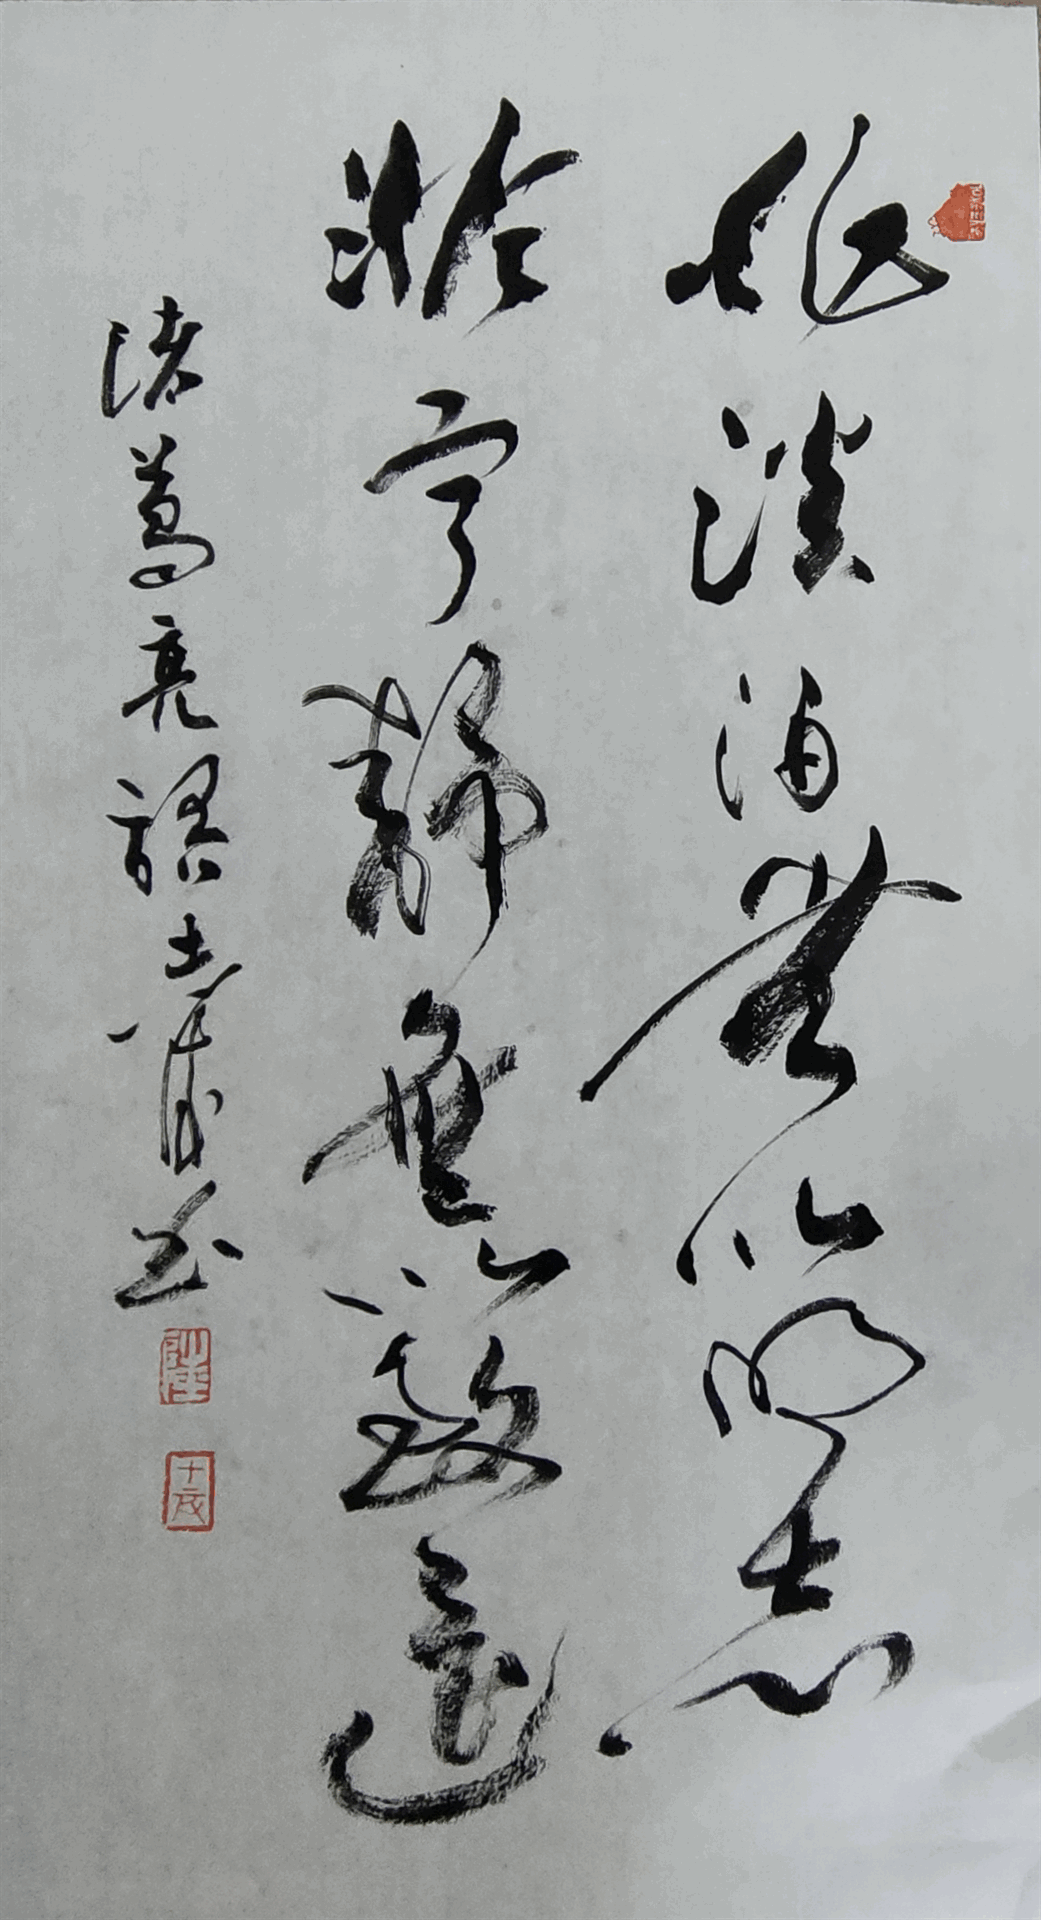 非淡泊無以明志
非宁靜無以致遠
諸葛亮語志書